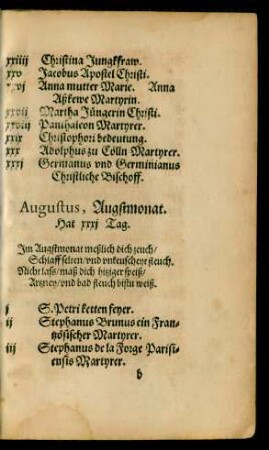 xxiiij Christina Jungkfraw.
xxv Jacobus Apostel Christi.
xxvj Anna mutter Marie. Anna
Aßkewe Martyrin.
xxvij Martha Jüngerin Christi.
xxviij Panthaleon Martyrer.
xxix Christophori bedeutung.
xxx Adolphus zu Cölln Martyrer.
xxxj Germanus vnd Germinianus
Christliche Bischoff.
Augustus, Augstmonat.
Hat xxxj Tag.
Im Augstmonat meßlich dich zeuch/
Schlaff selten/ vnd vnkeuscheyt fleuch.
Nicht lass/ maß dich hitziger speiß/
Artzney/ vnd bad fleuch bistu weiß.
j S. Petri ketten feyer.
ij Stephanus Brunus ein Fran-
tzösischer Martyrer.
iij Stephanus de la Forge Parisi-
ensis Martyrer.
b